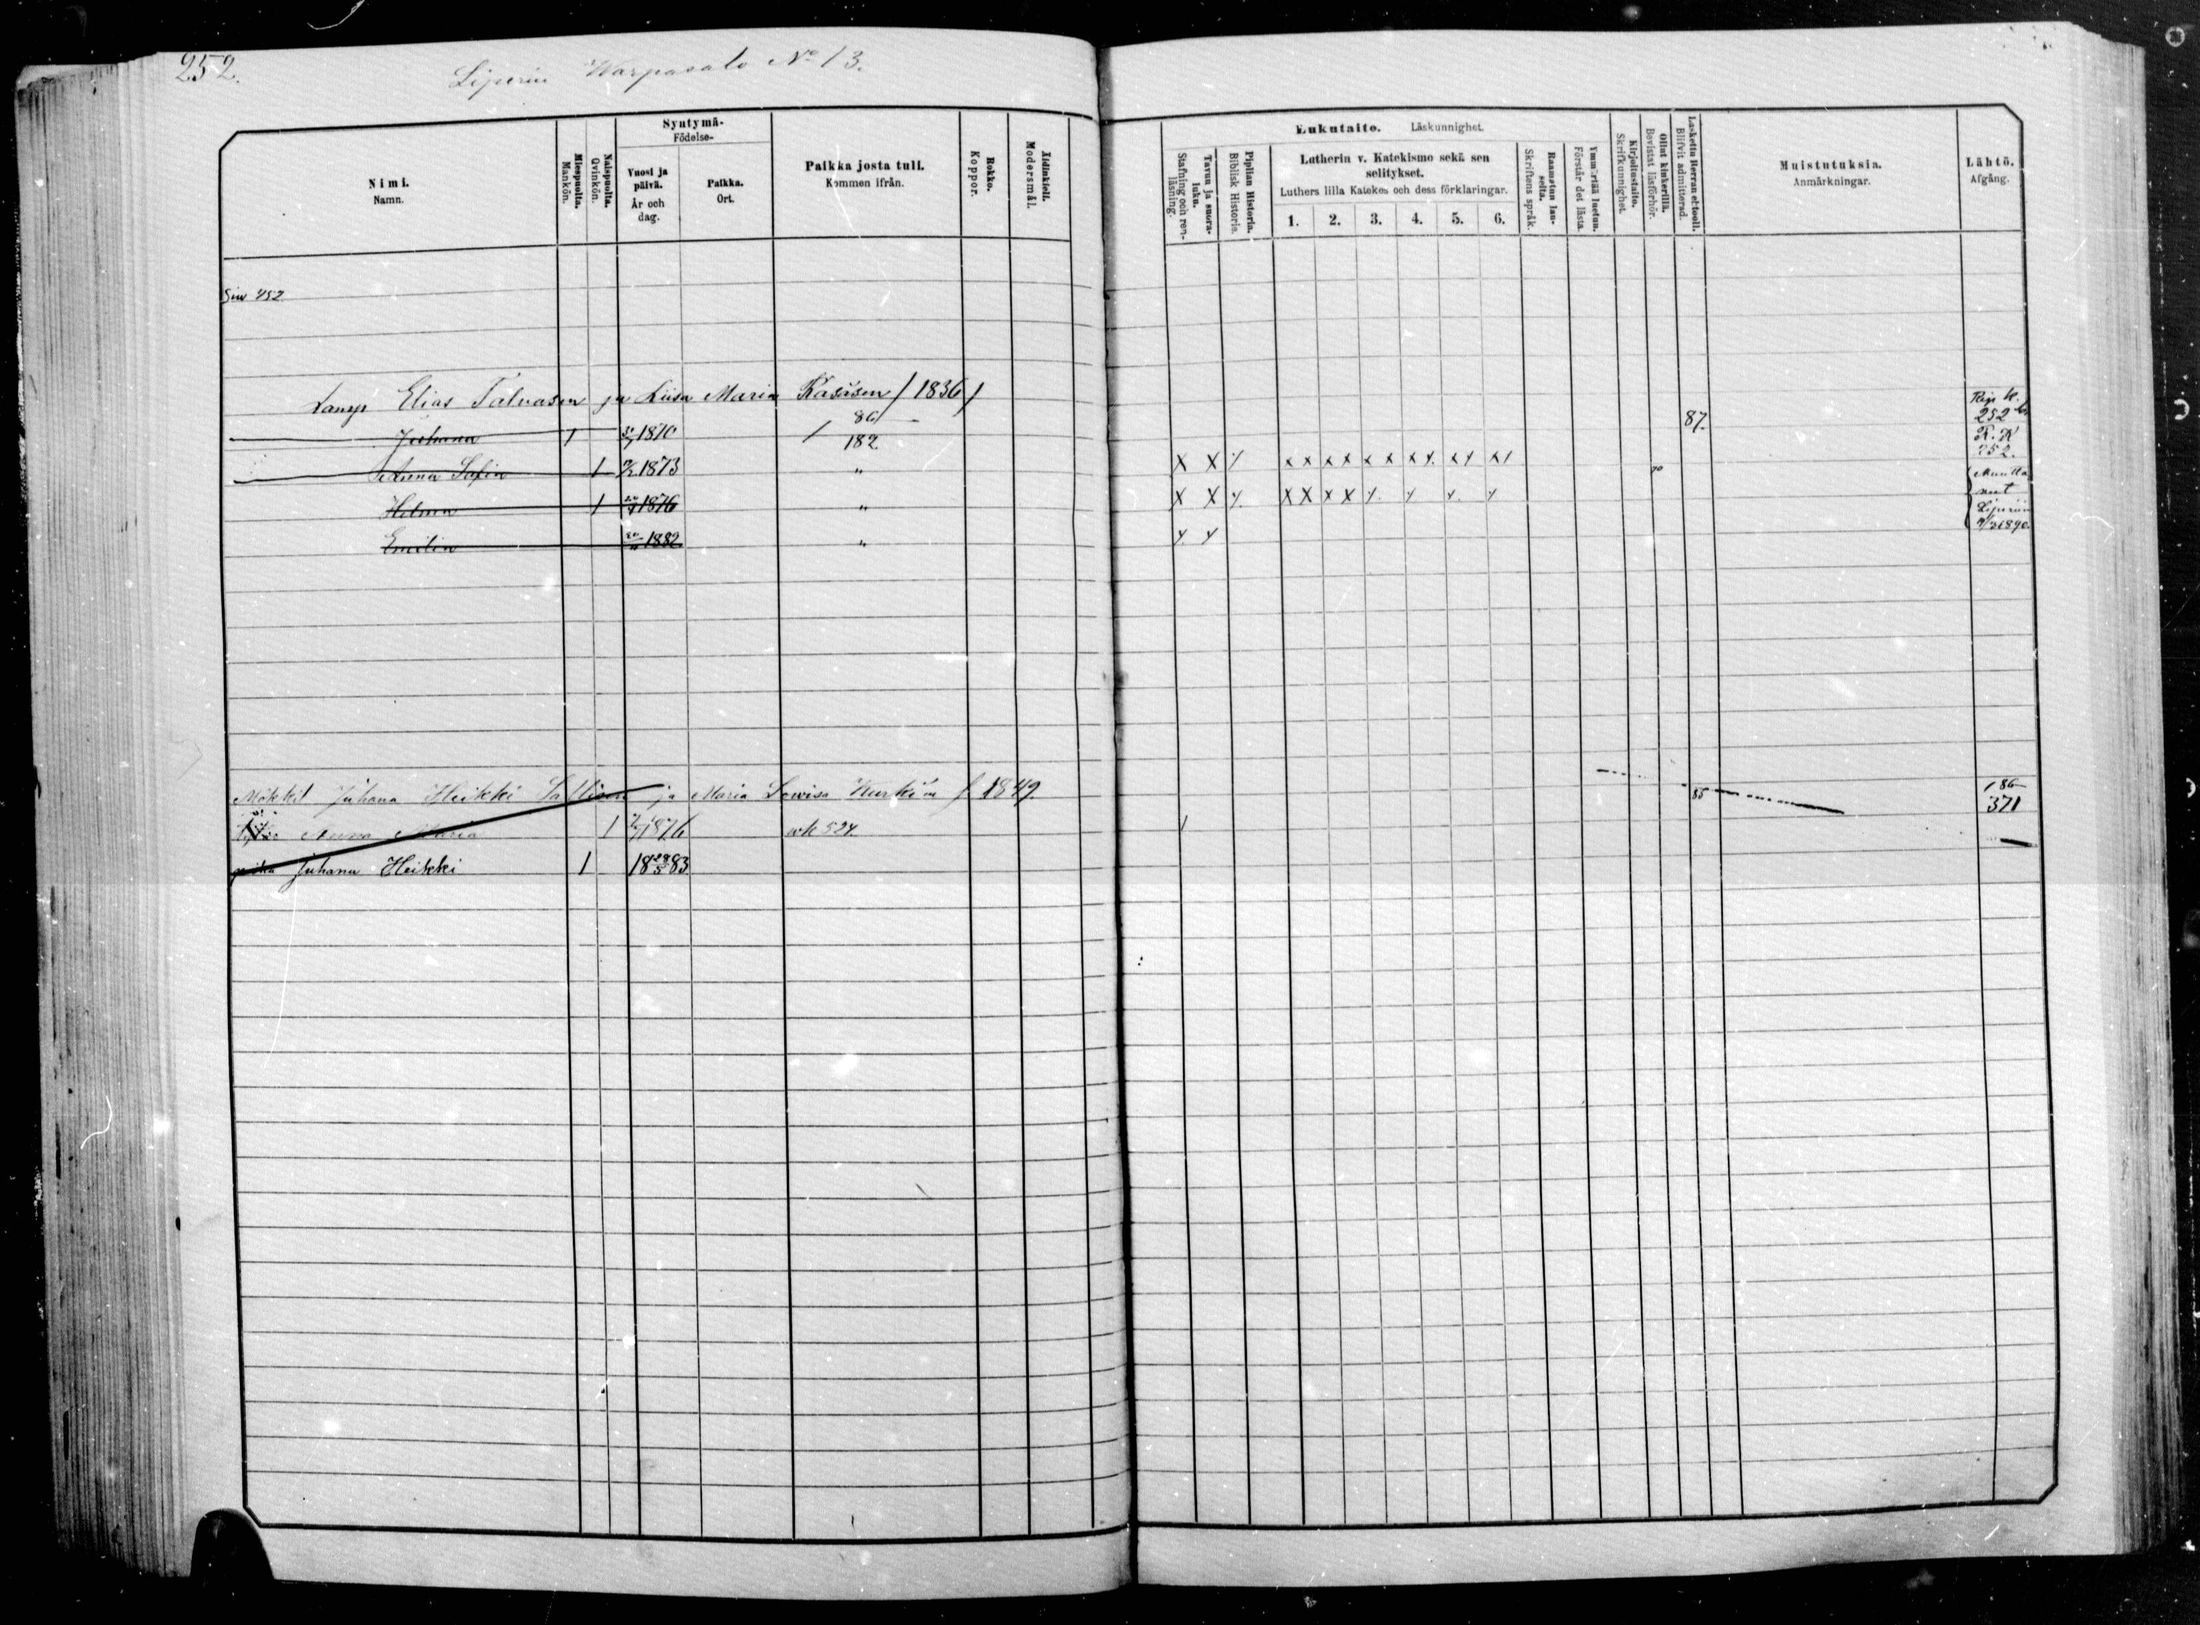 252.
Liperin Warpasalo No 13.
Nimi.
Namn.
Miespuolta.
Mankön.
Naispuolta.
Qvinkön.
Syntymä-
Födelse-
Vuosi ja päivä.
År och dag.
Paikka.
Ort.
Paikka josta tuli.
Kommen ifrån.
Rokko.
Koppor.
Äidinkieli.
Modersmål.
Lukutaito. Läskunnighet.
Tavuu ja suora-luku.
Stafning och ren-läsning.
Piplian Historia.
Biblisk Historia.
Lutherin v. Katekismo sekä sen selitykset.
Luthers lilla Katekes och dess förklaringar.
1. 2. 3. 4. 5. 6.
Raamatun lau-seita.
Skriftens språk.
Ymmärtää luetun.
Förstår det lästa.
Kirjoitustaito.
Skrifkunnighet.
Ollut kinkerillä.
Bevistat läsförhör.
Laskettu Herran ehtooll.
Blifvit admitterad.
Muistutuksia.
Anmärkningar.
Lähtö.
Afgång.
Siw 452
Lamp Elias Talvasen ja Liisa Maria (1836)
Juhana 1 1870 86/182 87. 252
Anna Sofia 1 1873 " X X 752.
Helma 1 1876 " X X
Emilia 1882 " 1890.
Mökkil Juhana Heikki ja Maria Lowisa f. 1849. 85 86 371
Anna Maria 1 1876 wk 524 1
poika Juhana Heikki 1 1883